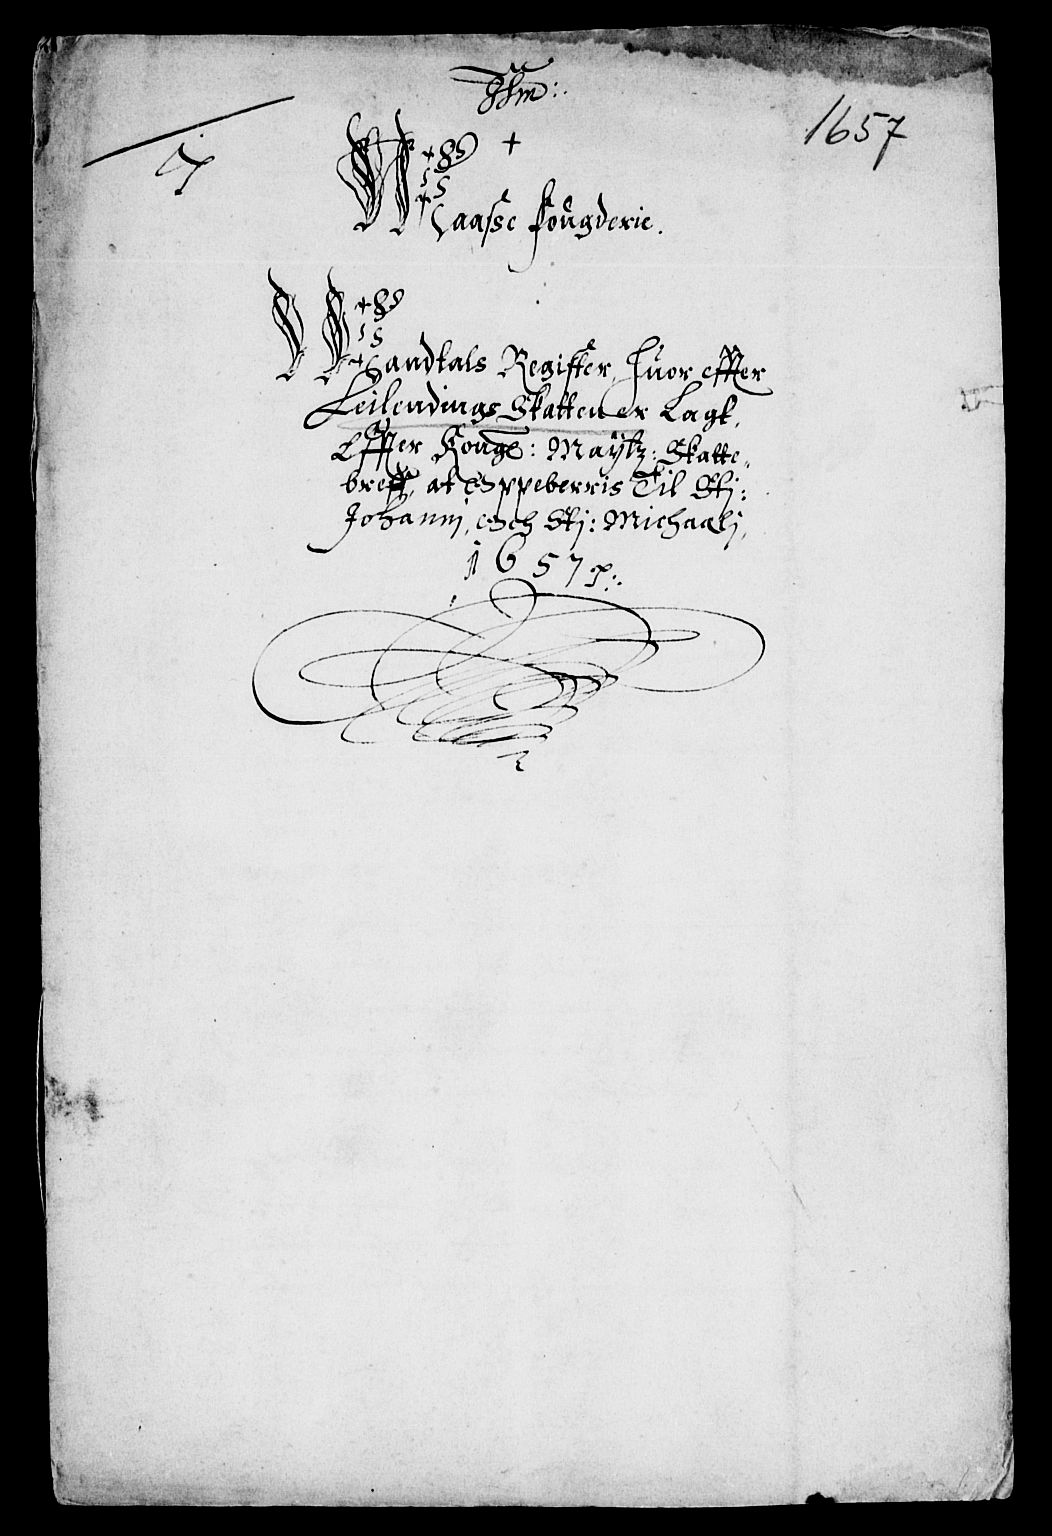 1657
Waasse fougderie.
Mandtals Register, huor effter
Leilendings Skatten er Lagt,
Effter Kong: Maÿtz: Skatte,,
breff, at Oppeberris Til Stj:
Johannj, och Stj: Michaelj,
1657 p: